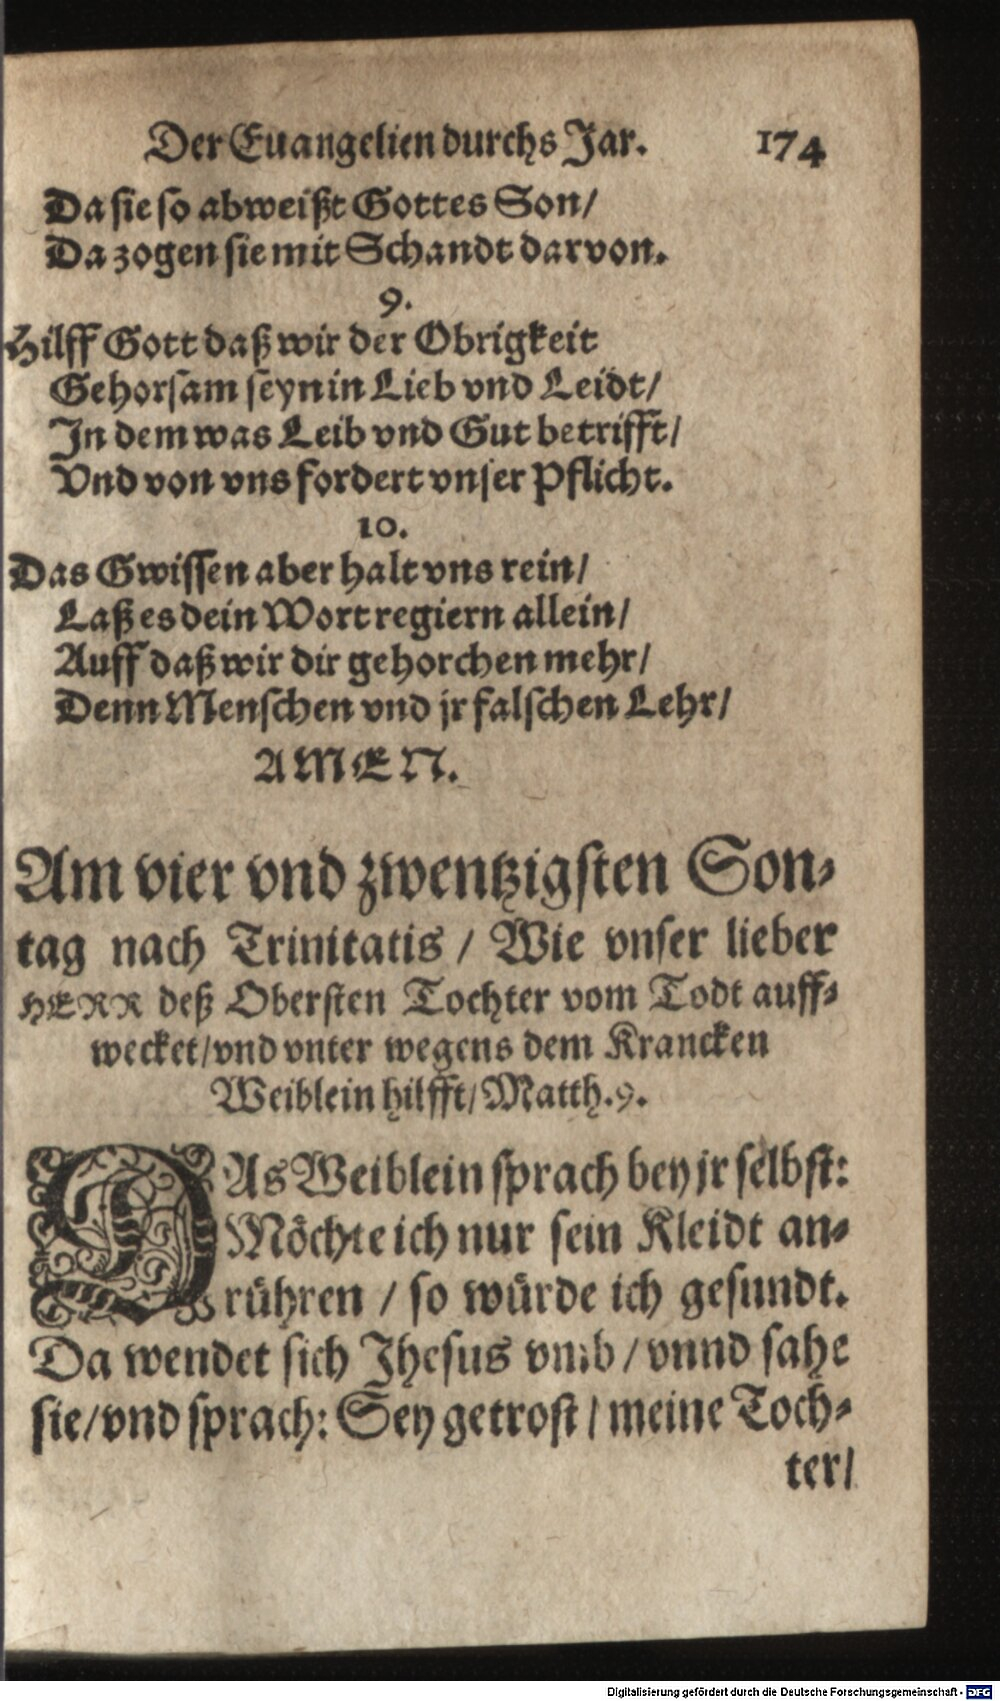 Der Euangelien durchs Jar. 174
Da sie so abweißt Gottes Son/
Da zogen sie mit Schandt darvon.
9.
Hilff Gott daß wir der Obrigkeit
Gehorsam seyn in Lieb vnd Leidt/
In dem was Leib vnd Gut betrifft/
Vnd von vns fordert vnser Pflicht.
10.
Das Gwissen aber halt vns rein/
Laß es dein Wort regiern allein/
Auff daß wir dir gehorchen mehr/
Denn Menschen vnd jr falschen Lehr/
AMEN.
Am vier vnd zwentzigsten Son-
tag nach Trinitatis / Wie vnser lieber
HERR deß Obersten Tochter vom Todt auff-
wecket/vnd vnter wegens dem Krancken
Weiblein hilfft/Matth.9.
DAs Weiblein sprach bey jr selbst:
Möchte ich nur sein Kleidt an-
rühren / so würde ich gesundt.
Da wendet sich Jhesus vmb / vnnd sahe
sie/vnd sprach: Sey getrost / meine Toch-
ter/
Digitalisierung gefördert durch die Deutsche Forschungsgemeinschaft - DFG